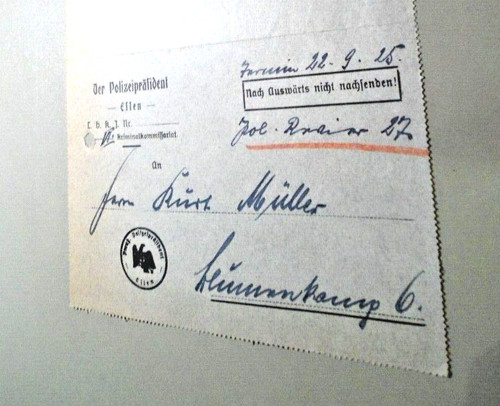 Termin 22.9.25.
Der Polizeipräsident
Nach Auswärts nicht nachsenden!
— Essen —
Pol. Revier 27
Kriminalkommissariat
An
Herrn Kurt Müller
Polizeipräsident
Essen
Blumenkamp 6.